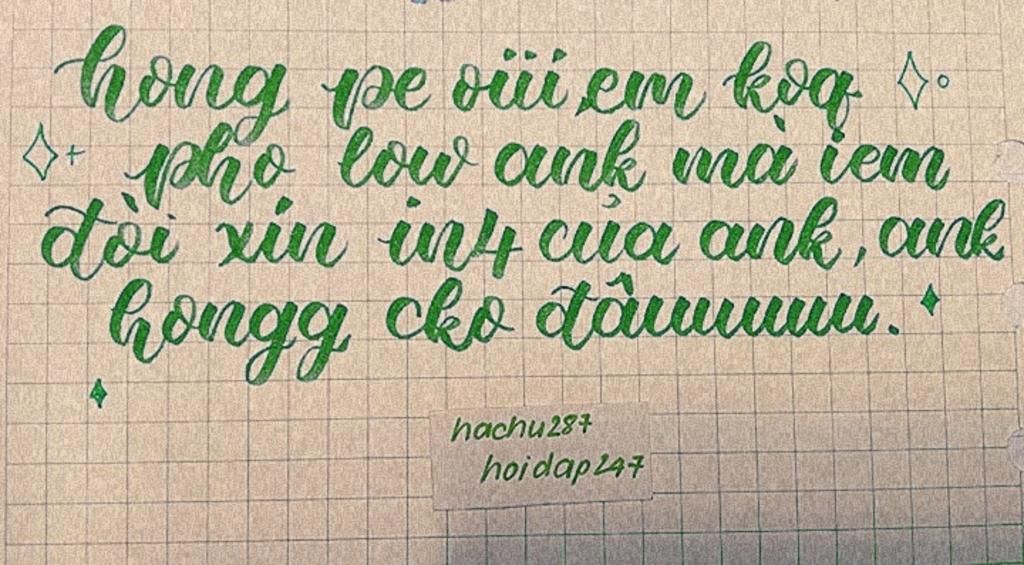 hong pe oiii, em koq
pho low ank mà iem
đòi xin in4 của ank, ank
hongg cko đâuuuuuu.
hachu287
hoidap247